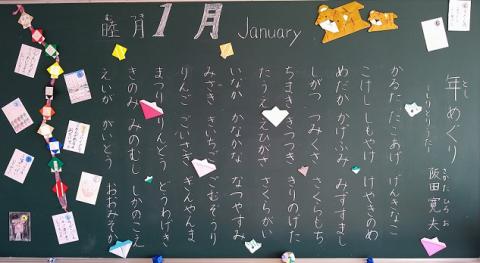 睦月 1月 January
むつき
年めぐり
とし
しりとりうた
阪田寛夫
さかた ひろお
かるた たこあげ げんきなこ
こけし しもやけ けやきのめ
めだか かげふみ みずすまし
しがつ つみくさ さくらもち
ちまき きつつき きりのげた
たうえ えひがさ さくらがい
いなか かなかな なつやすみ
みさき きいちご ごむぞうり
りんご ごいさぎ ぎんやんま
まつり りんどう どうわげき
きのみ みのむし しかのこえ
えいが がいとう おおみそか